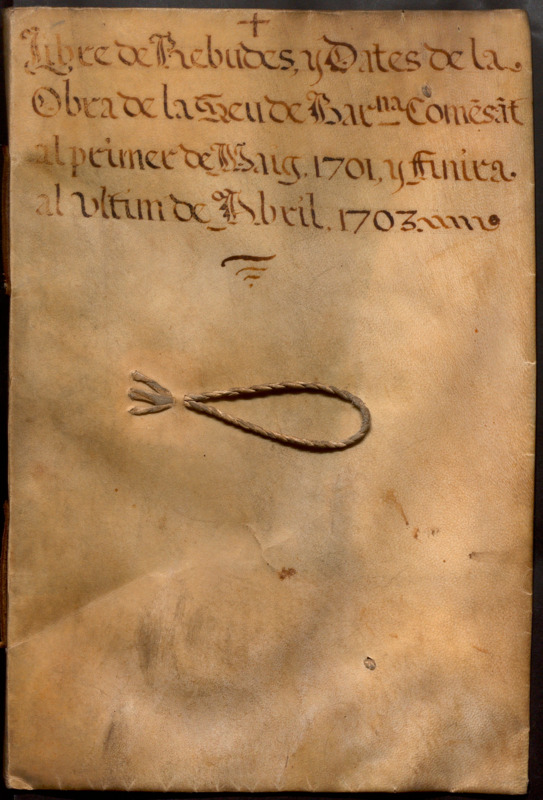 +
Llibre de Rebudes, y Dates de la
Obra de la Seu de Bar.na Comēsāt
al primer de Maig. 1701, y Finira.
al vltim de Abril. 1703.